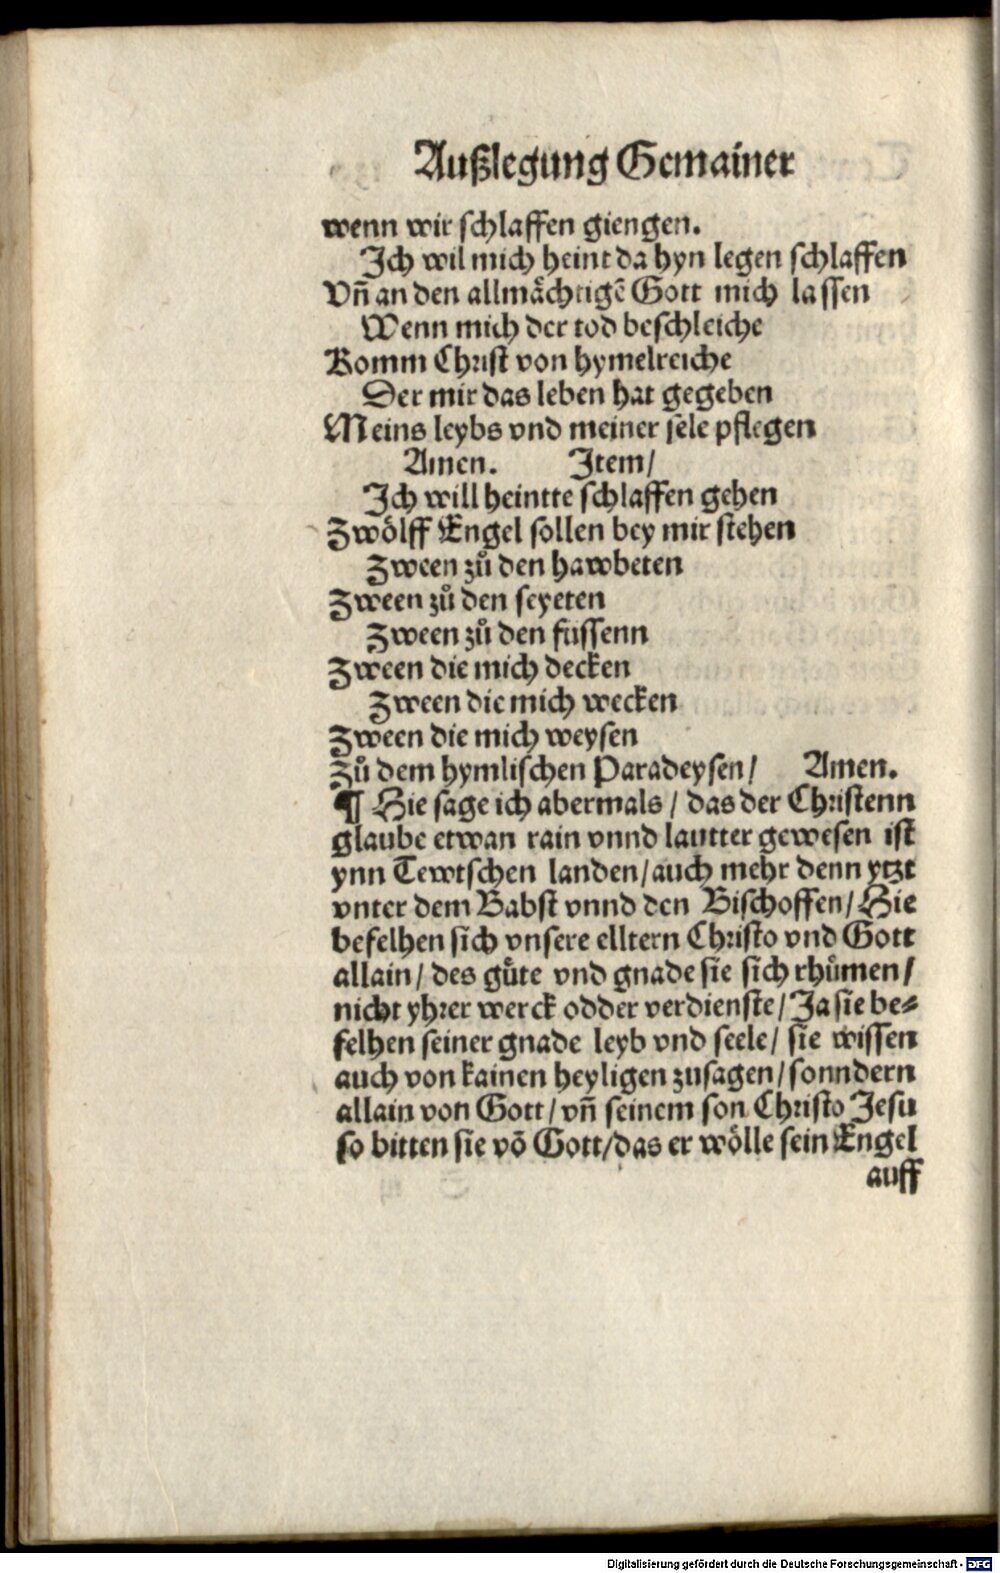 Außlegung Gemainer
wenn wir schlaffen giengen.
Ich wil mich heint da hyn legen schlaffen
Vñ an den allmächtigẽ Gott mich lassen
Wenn mich der tod beschleiche
Komm Christ von hymelreiche
Der mir das leben hat gegeben
Meins leybs vnd meiner sele pflegen
Amen. Item/
Ich will heintte schlaffen gehen
Zwölff Engel sollen bey mir stehen
Zween zů den hawbeten
Zween zů den seyeten
Zween zů den füssenn
Zween die mich decken
Zween die mich wecken
Zween die mich weysen
Zů dem hymlischen Paradeysen/ Amen.
¶ Hie sage ich abermals / das der Christenn
glaube etwan rain vnnd lautter gewesen ist
ynn Tewtschen landen/auch mehr denn ytzt
vnter dem Babst vnnd den Bischoffen/Hie
befelhen sich vnsere elltern Christo vnd Gott
allain/ des gůte vnd gnade sie sich rhůmen/
nicht yhrer werck odder verdienste/Ja sie be⸗
felhen seiner gnade leyb vnd seele/ sie wissen
auch von kainen heyligen zusagen/sonndern
allain von Gott/vñ seinem son Christo Jesu
so bitten sie võ Gott/das er wölle sein Engel
auff
Digitalisierung gefördert durch die Deutsche Forschungsgemeinschaft - DFG